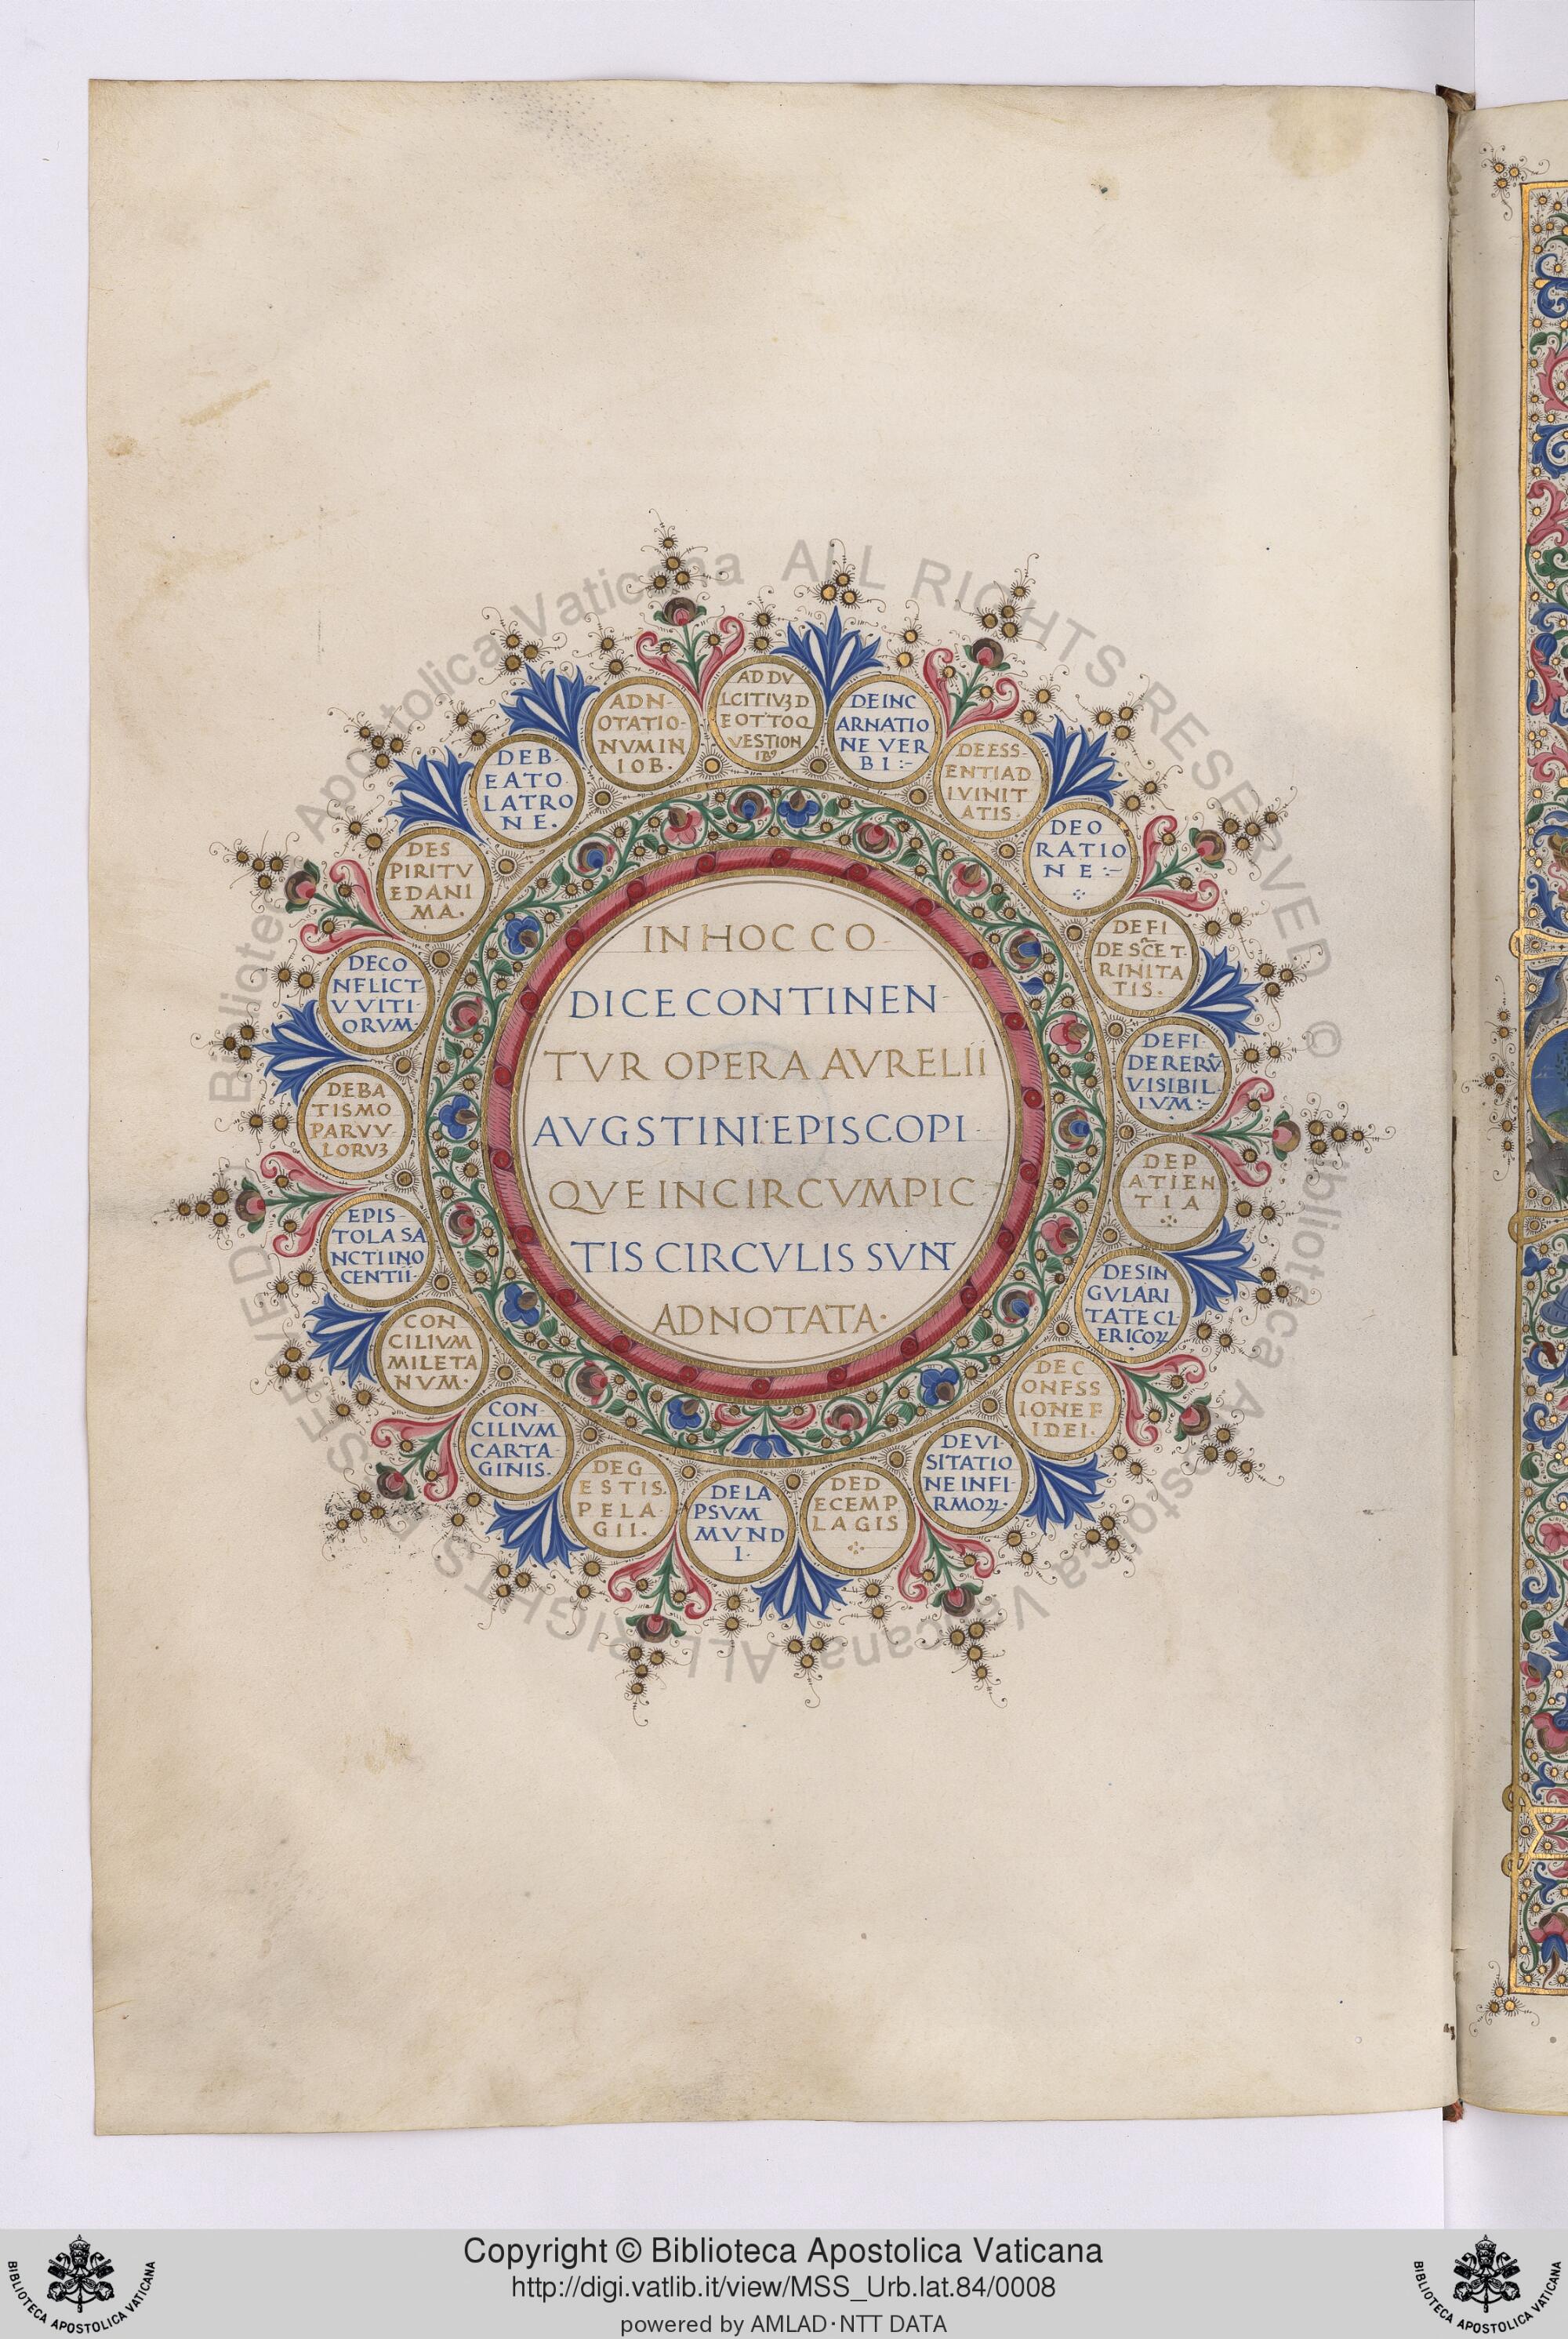 IN HOC CO-
DICE CONTINEN-
TVR OPERA AVRELII
AVGSTINI·EPISCOPI·
QVE IN CIRCVMPIC
TIS CIRCVLIS SVNT
ADNOTATA·
AD DV
LCITIVꝫ D
E OTTO Q
VESTION
IBꝰ
DE INC
ARNATIO
NE VER
BI:-
DE ESS-
ENTIA D
IVINIT
ATIS·
DE O
RATIO
NE:-
DE FI
DE SC̄E T
RINITA
TIS.
DE FI-
DE RERV̄
VISIBIL
IVM:-
DE P
ATIEN
TIA
DE SIN
GVLARI
TATE CL
ERICOꝝ
DE C
ONFSS
IONE F
IDEI.
DE VI·
SITATIO
NE INFI-
RMOꝝ·
DE D
ECEM P
LAGIS
DE LA
PSVM
MVND
I·
DE G
ESTIS.
PELA
GII.
CON-
CILIVM
CARTA-
GINIS.
CON
CILIVM
MILETA
NVM·
EPIS-
TOLA SA
NCTI INO
CENTII·
DE BA
TISMO
PARVV-
LORVꝫ
DE CO
NFLICT-
V VITI-
ORVM·
DE S
PIRITV
ED ANI
MA.
DE B-
EATO·
LATRO
NE.
ADN-
OTATIO-
NVM IN
IOB.
Biblioteca Apostolica Vaticana ALL RIGHTS RESERVED ©
Biblioteca Apostolica Vaticana ALL RIGHTS RESERVED ©
Copyright © Biblioteca Apostolica Vaticana
http://digi.vatlib.it/view/MSS_Urb.lat.84/0008
powered by AMLAD·NTT DATA
BIBLIOTECA APOSTOLICA VATICANA
BIBLIOTECA APOSTOLICA VATICANA